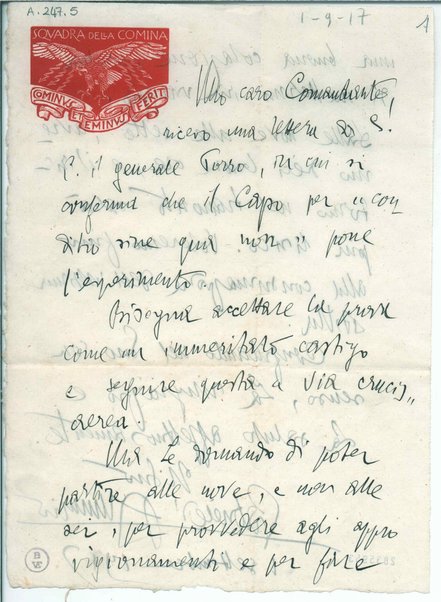 A. 247.5
1-9-17
1
SQVADRA DELLA COMINA
COMINVS ET EMINVS FERIT
Mio caro Comandante,
ricevo una lettera di S.
E. il generale Porro, in cui si
conferma che il Capo per "con
ditio sine qua non" pone
l'esperimento.
Bisogna accettare la prova
come un immeritato castigo
e seguire questa "Via crucis"
aerea.
Ma Le domando di poter
partire alle nove, e non alle
sei, per provvedere agli appro
vigionamenti e per fare